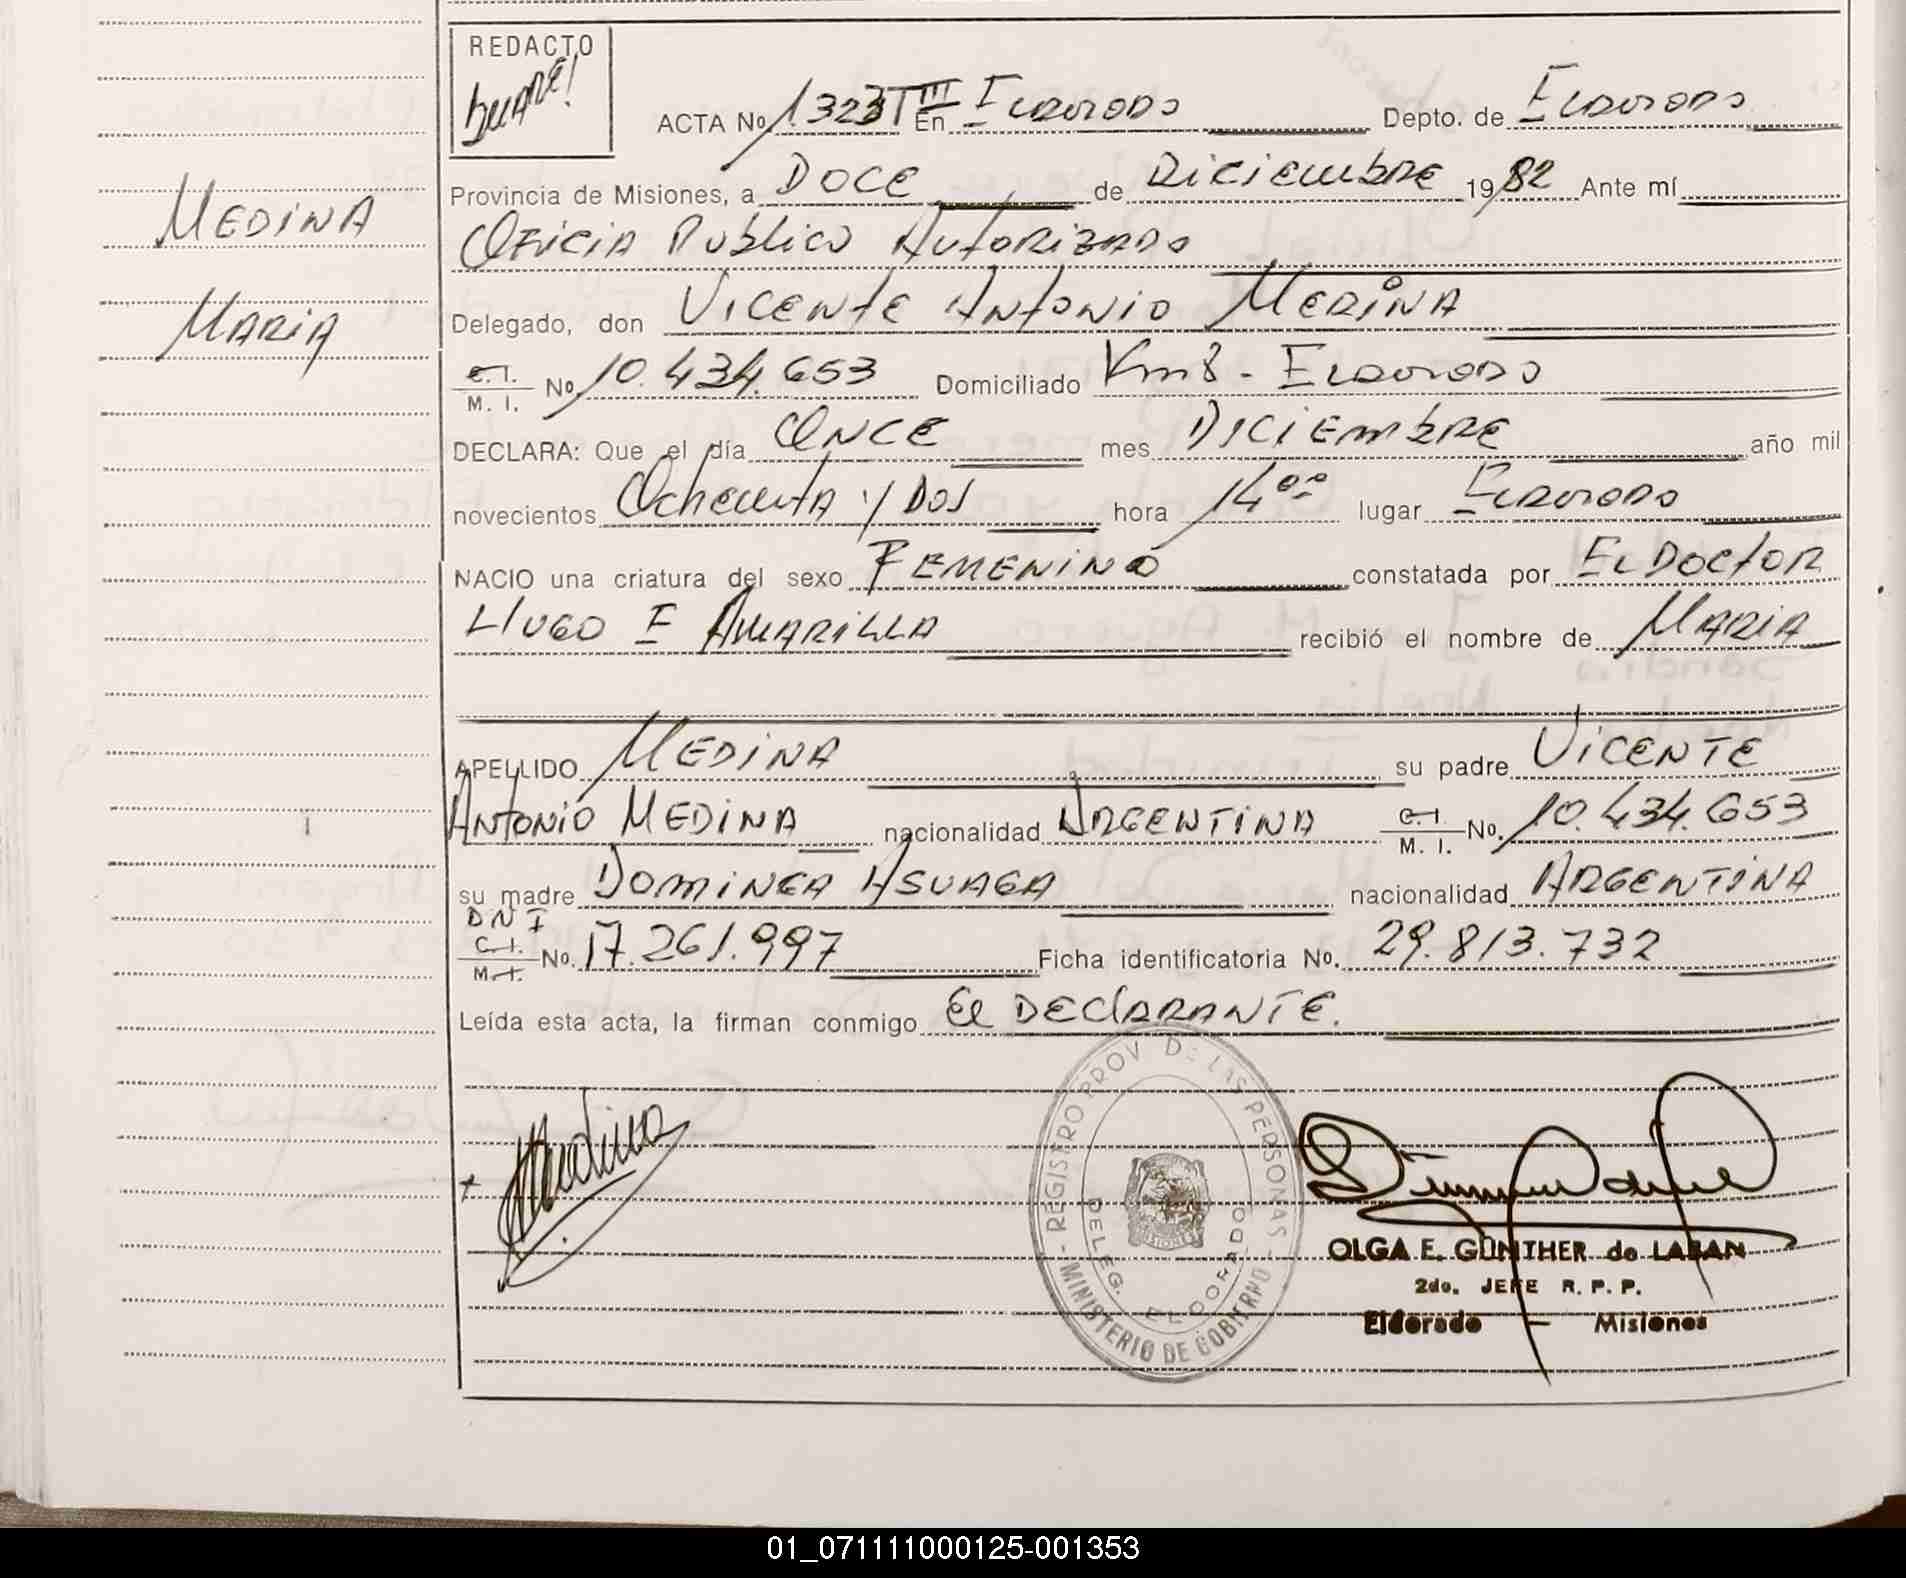 REDACTO
Duarte!
ACTA No. 1323 T III En Eldorado Depto. de Eldorado
Provincia de Misiones, a DOCE de Diciembre 1982 Ante mí
Oficia Publico Autorizado
MEDINA
Delegado, don Vicente Antonio MEDINA
MARIA
C. I.
M. I. No. 10.434.653 Domiciliado Km8 - Eldorado
DECLARA: Que el día ONCE mes DICIEMBRE año mil
novecientos Ochenta y Dos hora 14°° lugar Eldorado
NACIO una criatura del sexo FEMENINO constatada por El DOCTOR
HUGO E AMARILLA recibió el nombre de MARIA
APELLIDO MEDINA su padre VICENTE
ANTONIO MEDINA nacionalidad ARGENTINA C. I. M. I. No. 10.434.653
su madre DOMINGA ASUAGA nacionalidad ARGENTINA
DNI
C. I.
M. I. No. 17.261.997 Ficha identificatoria No. 29.813.732
Leída esta acta, la firman conmigo El DECLARANTE.
x Medina
- REGISTRO PROV DE LAS PERSONAS -
MINISTERIO DE GOBIERNO
DELEG. ELDORADO
MISIONES
OLGA E. GÜNTHER de LABAN
2do. JEFE R. P. P.
Eldorado - Misiones
01_071111000125-001353